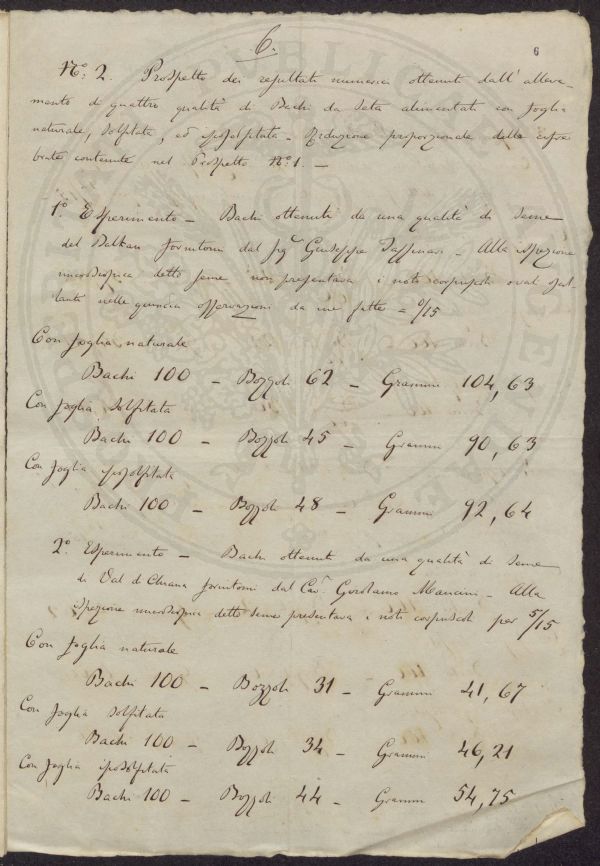 6.
6
N.º 2. Prospetto dei resultati numerici ottenuti dall'alleva-
mento di quattro qualità di Bachi da Seta alimentati con foglia
naturale, solfitata, ed iposolfitata - Riduzione proporzionale delle cifre
brute contenute nel Prospetto N.º 1. -
1º. Esperimento - Bachi ottenuti da una qualità di Seme
del Balkan fornitomi dal Sig.r Giuseppe - Alla ispezione
microscopica detto seme non presentava i noti corpuscoli ovali
nelle quindici osservazioni da me fatte = 0/15
Con foglia naturale
Bachi 100 - Bozzoli 62 - Grammi 104,63
Con foglia solfitata
Bachi 100 - Bozzoli 45 - Grammi 90,63
Con foglia iposolfitata
Bachi 100 - Bozzoli 48 - Grammi 92,64
2º. Esperimento - Bachi ottenuti da una qualità di Seme
di Val di Chiana fornitomi dal Cav.r Girolamo Mancini - Alla
ispezione microscopica detto seme presentava i noti corpuscoli per 5/15
Con foglia naturale
Bachi 100 - Bozzoli 31 - Grammi 41,67
Con foglia solfitata
Bachi 100 - Bozzoli 34 - Grammi 46,21
Con foglia iposolfitata
Bachi 100 - Bozzoli 44 - Grammi 54,75